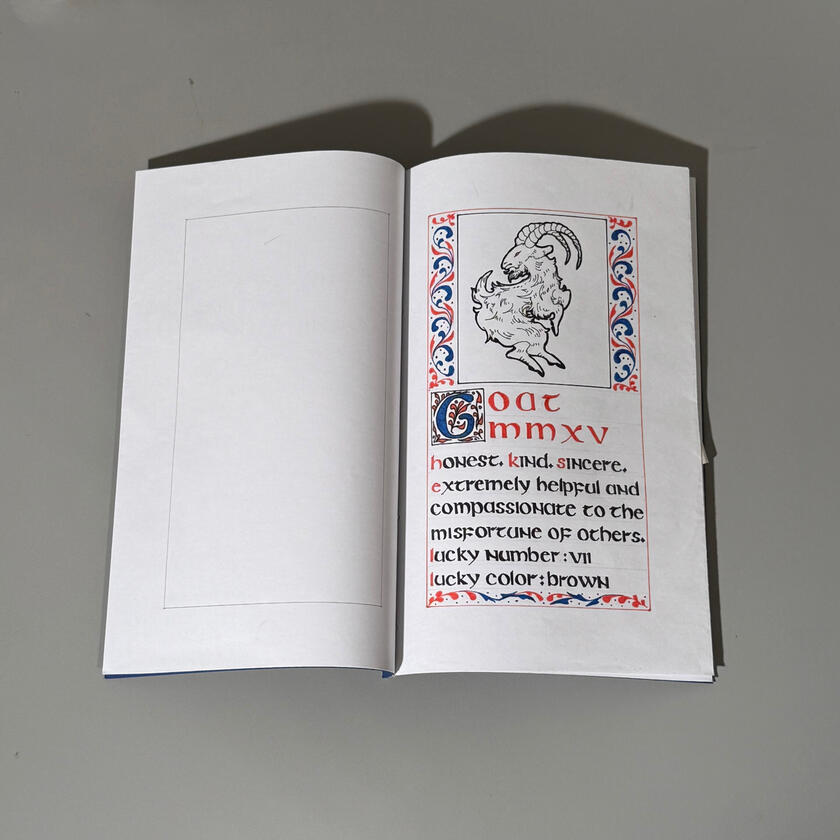 Goat
mmxv
honest. kind. sincere.
extremely helpful and
compassionate to the
misfortune of others.
lucky number: vii
lucky color: brown